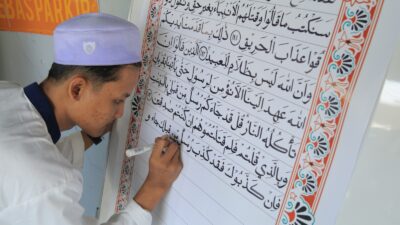 EBASPARKIR
سنكتب ما قالوا وقتلهم الأنبياء بغير حق ونقول
ذوقوا عذاب الحريق ذلك بما قدمت أيديكم
وأن الله ليس بظلام للعبيد الذين قالوا إن
الله عهد إلينا ألا نؤمن لرسول حتى يأتينا بقربان
تأكله النار قل قد جاءكم رسل من قبلي بالبينات
وبالذي قلتم فلم قتلتموهم إن كنتم صدقين
فإن كذبوك فقد كذب رسل من قبلك جاءو